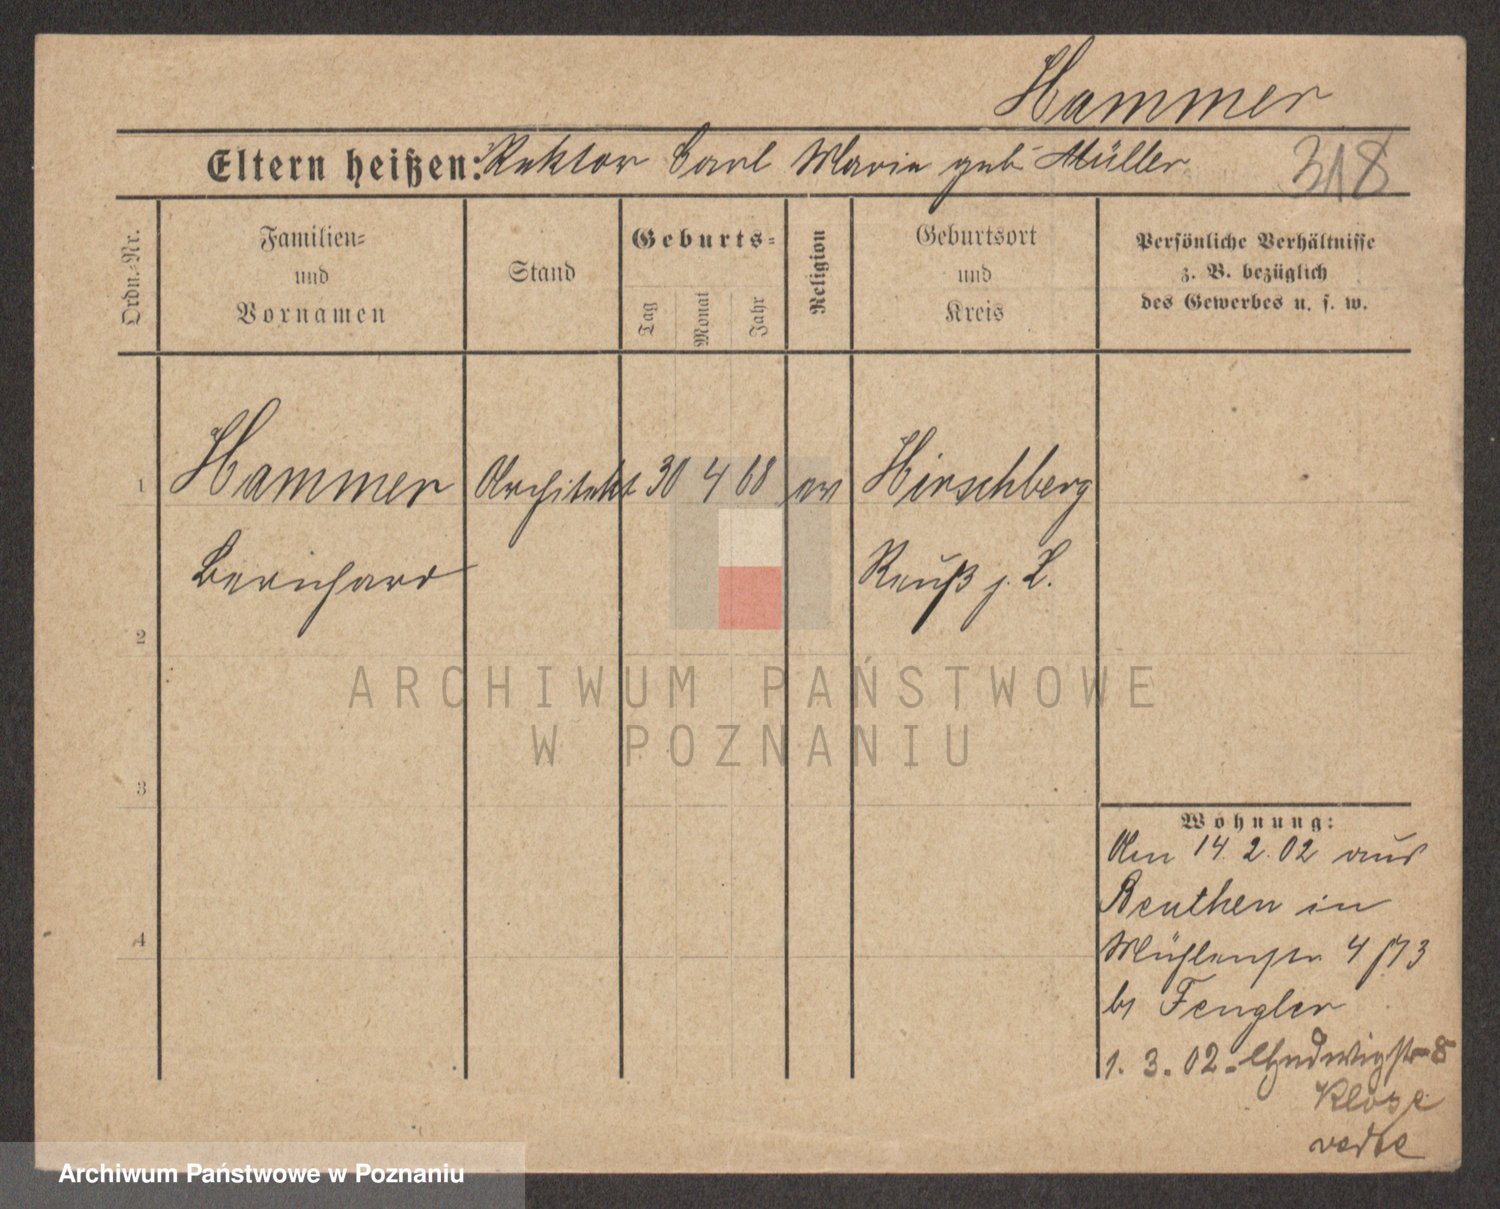 Hammer
Eltern heißen: Rektor Carl Marie geb. Müller
318
Ordn.-Nr.
Familien-
und
Vornamen
Stand
Geburts-
Tag
Monat
Jahr
Religion
Geburtsort
und
Kreis
Persönliche Verhältnisse
z. B. bezüglich
des Gewerbes u. s. w.
1
Hammer Architekt 30 4 68 ev Hirschberg
Bernhard
Reuß j. L.
2
ARCHIWUM PAŃSTWOWE
W POZNANIU
3
4
Wohnung:
Am 14. 2. 02 aus
Beuthen in
Mühlenstr 4
bei Fengler
1. 3. 02
Klose
Archiwum Państwowe w Poznaniu